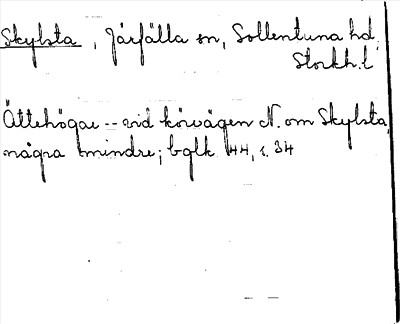 Skylsta, Järfälla sn, Sollentuna hd.
Stockh.l
Ättehögar -- vid körvägen N. om Skylsta,
några mindre; bglk 44, s. 34